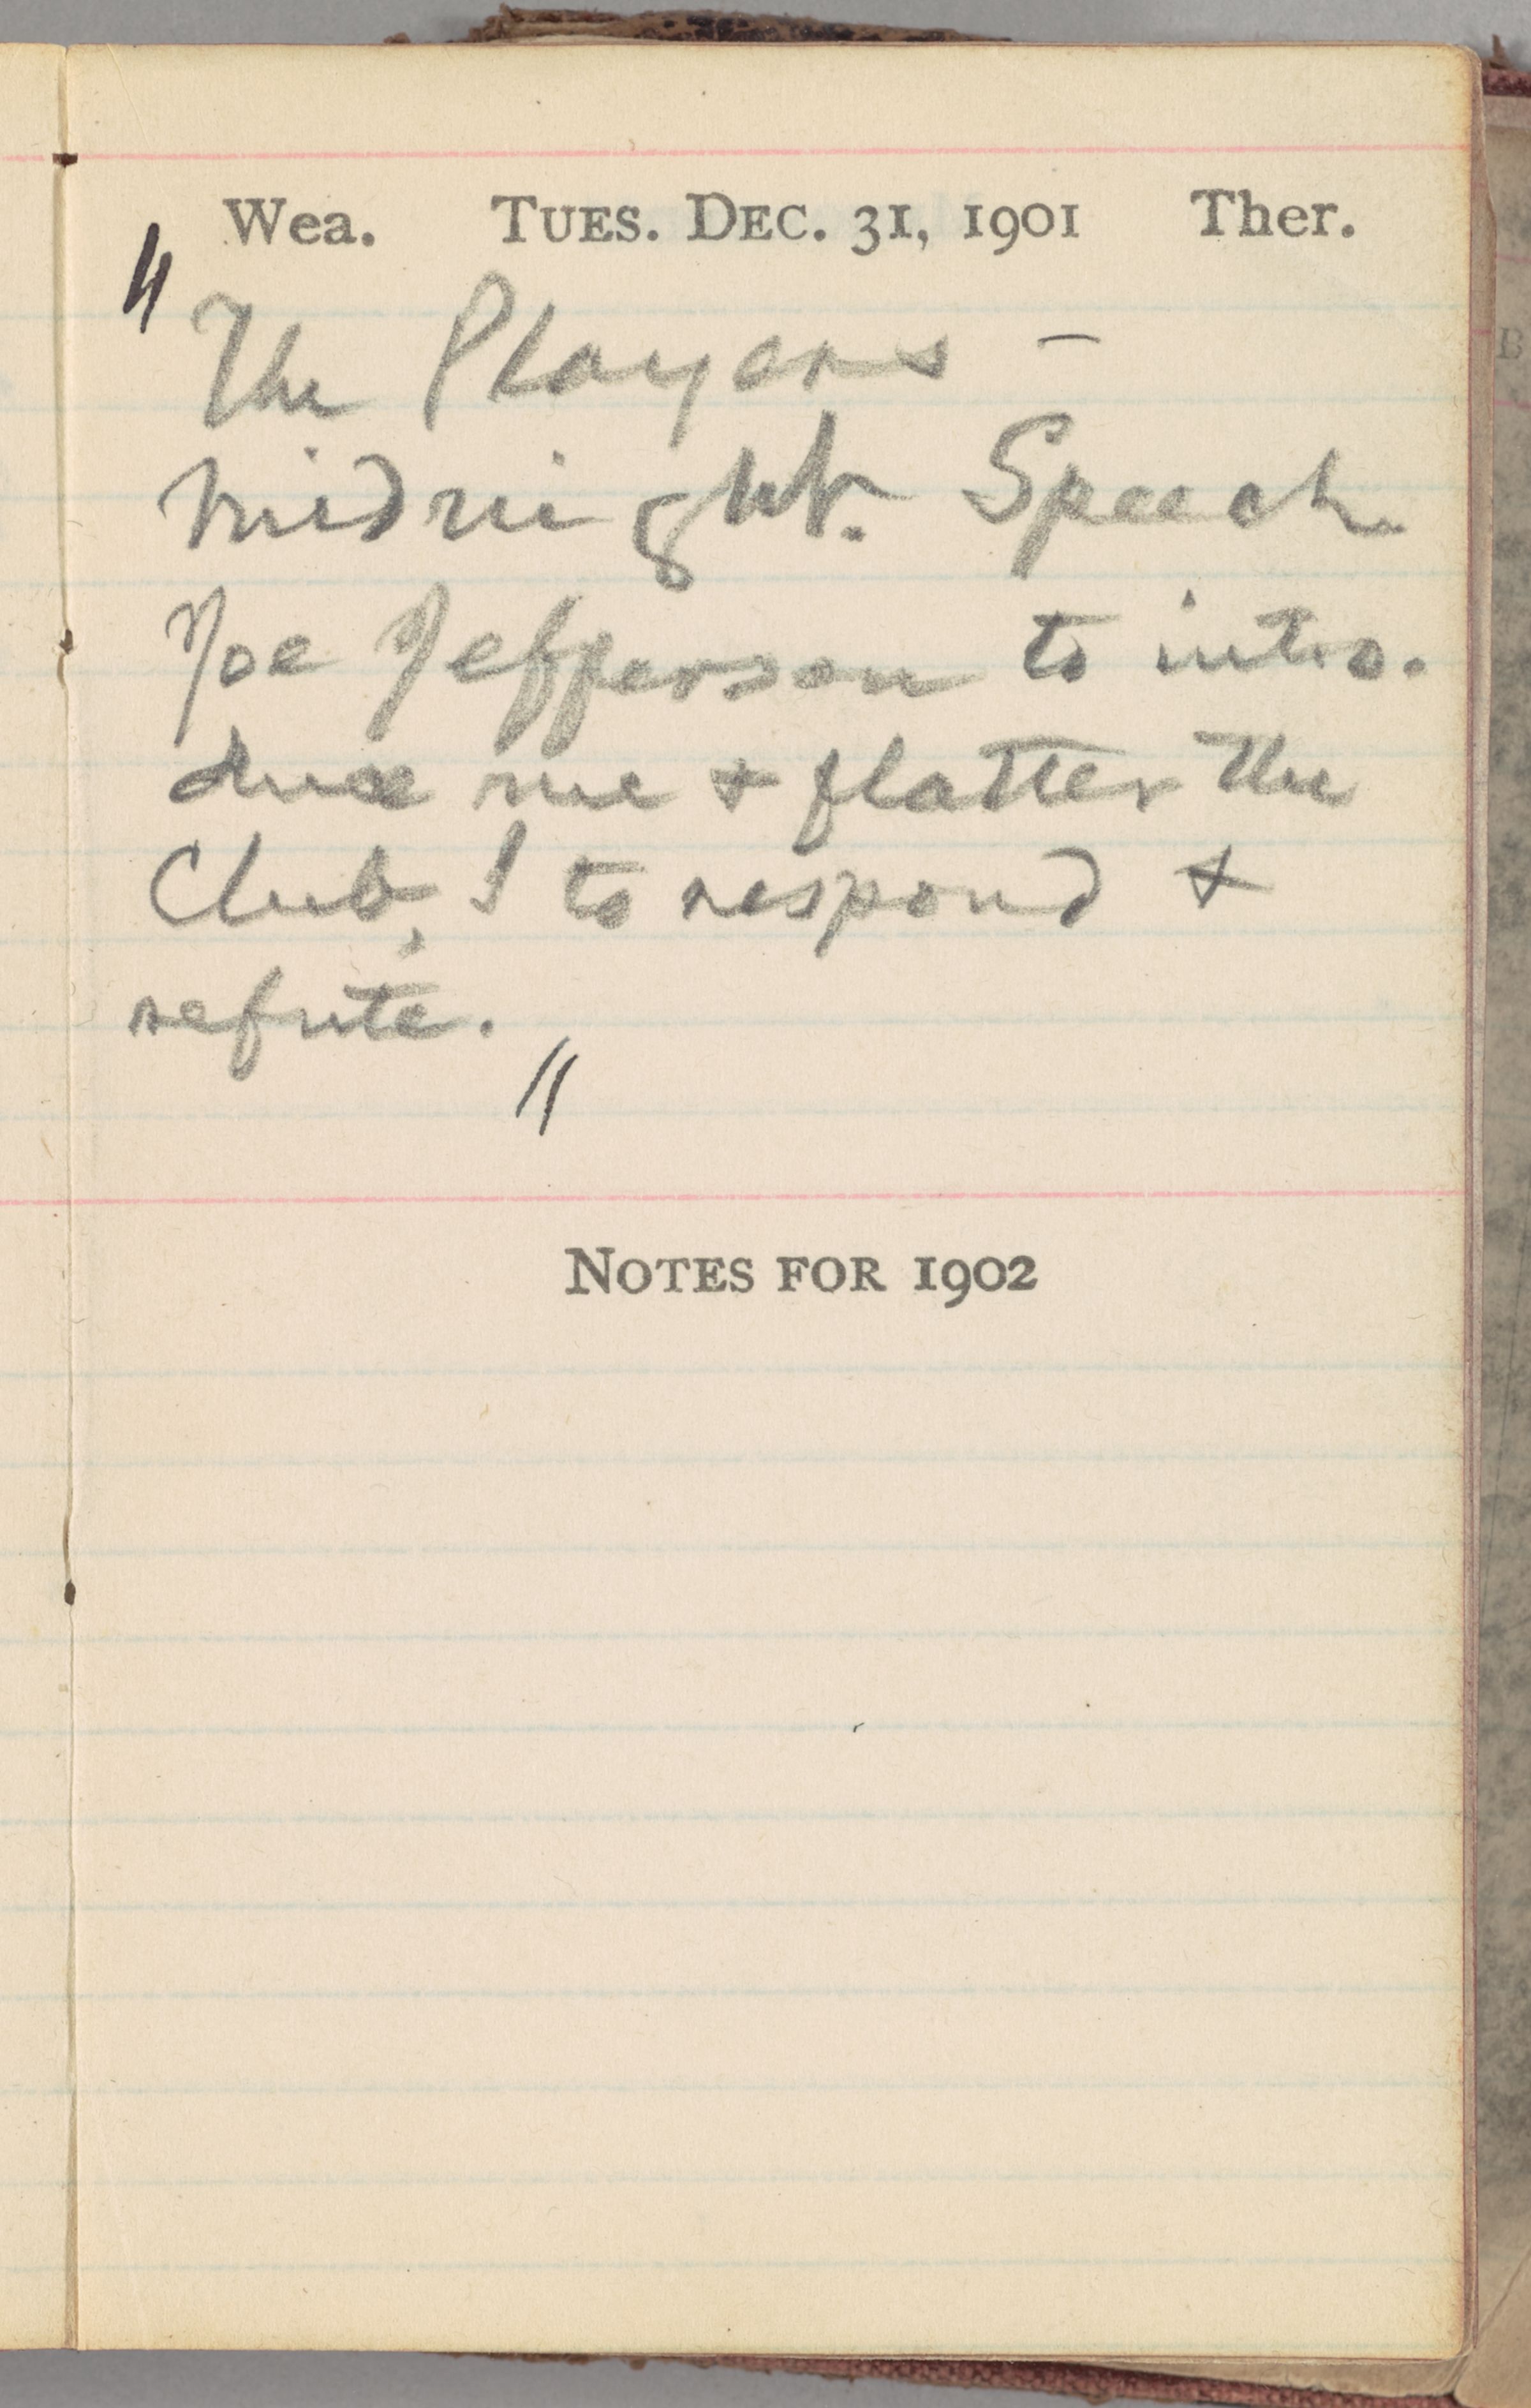 Wea. TUES. DEC. 31, 1901 Ther.
" The Players —
midnight. Speech.
Joe Jefferson to intro-
duce me & flatter the
Club, I to respond &
refute.
"
NOTES FOR 1902